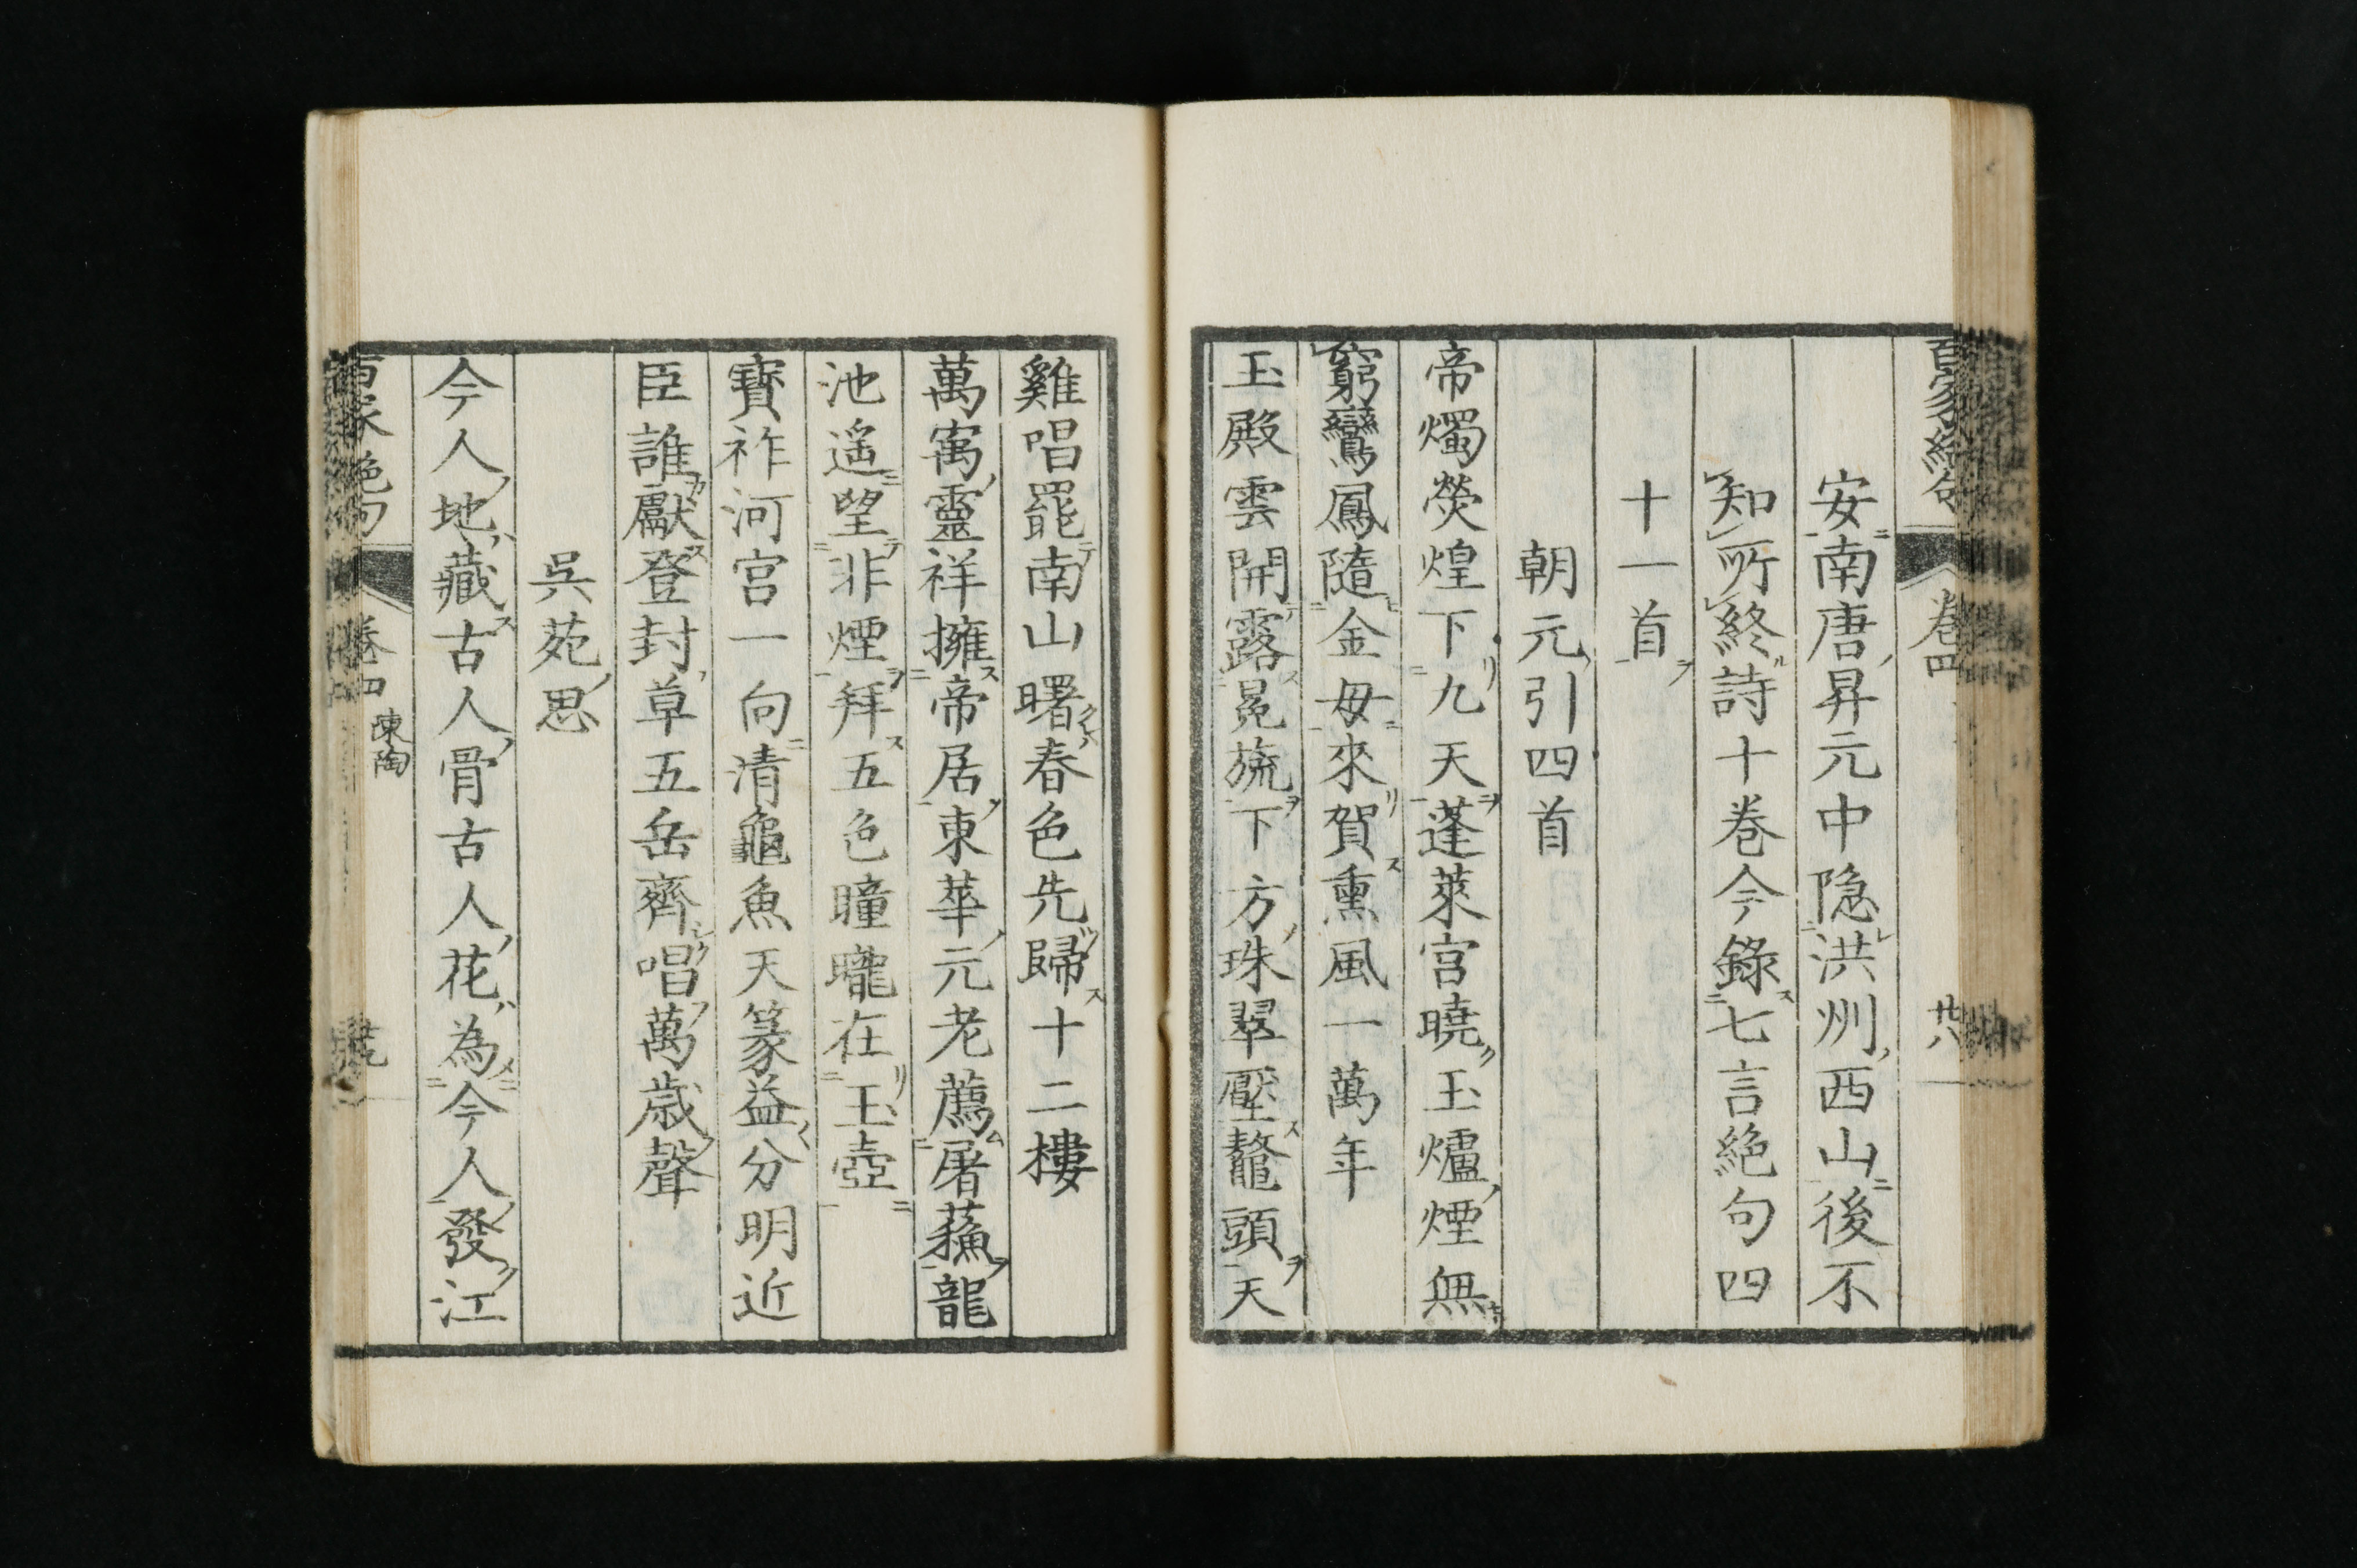 百家絶句
卷四
廿八
安南唐昇元中隐洪州西山後不
知所終詩十卷今錄七言絶句四
十一首
朝元引四首
帝燭熒煌下九天蓬萊宮曉玉爐煙無
窮鸞鳳隨金母來賀熏風一萬年
玉殿雲開露冕旒下方珠翠壓鼇頭天
雞唱罷南山曙春色先歸十二樓
萬㝢靈祥擁帝居東華元老薦屠蘇龍
池遙望非煙拜五色瞳曨在玉壺
寶祚河宮一向清龜魚天篆益分明近
臣誰獻登封草五岳齊唱萬歲聲
吳苑思
今人地藏古人骨古人花為今人發江
百家絶句
卷四
陳陶